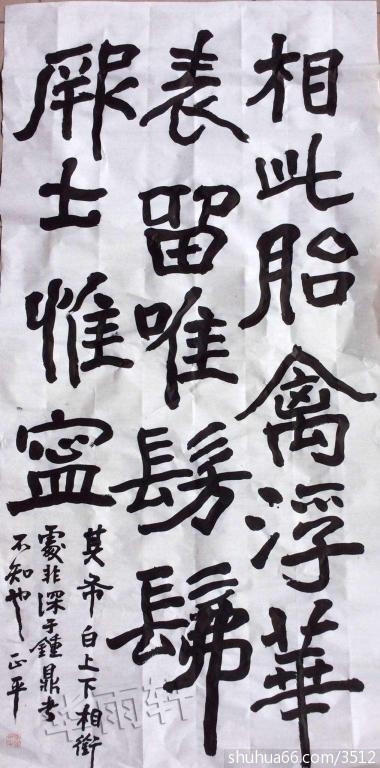 相此胎禽浮華
表留唯髣髴
厥土惟寍
其布白上下相銜
處非深于鍾鼎者
不知也 正平
shuhua66.com/3512